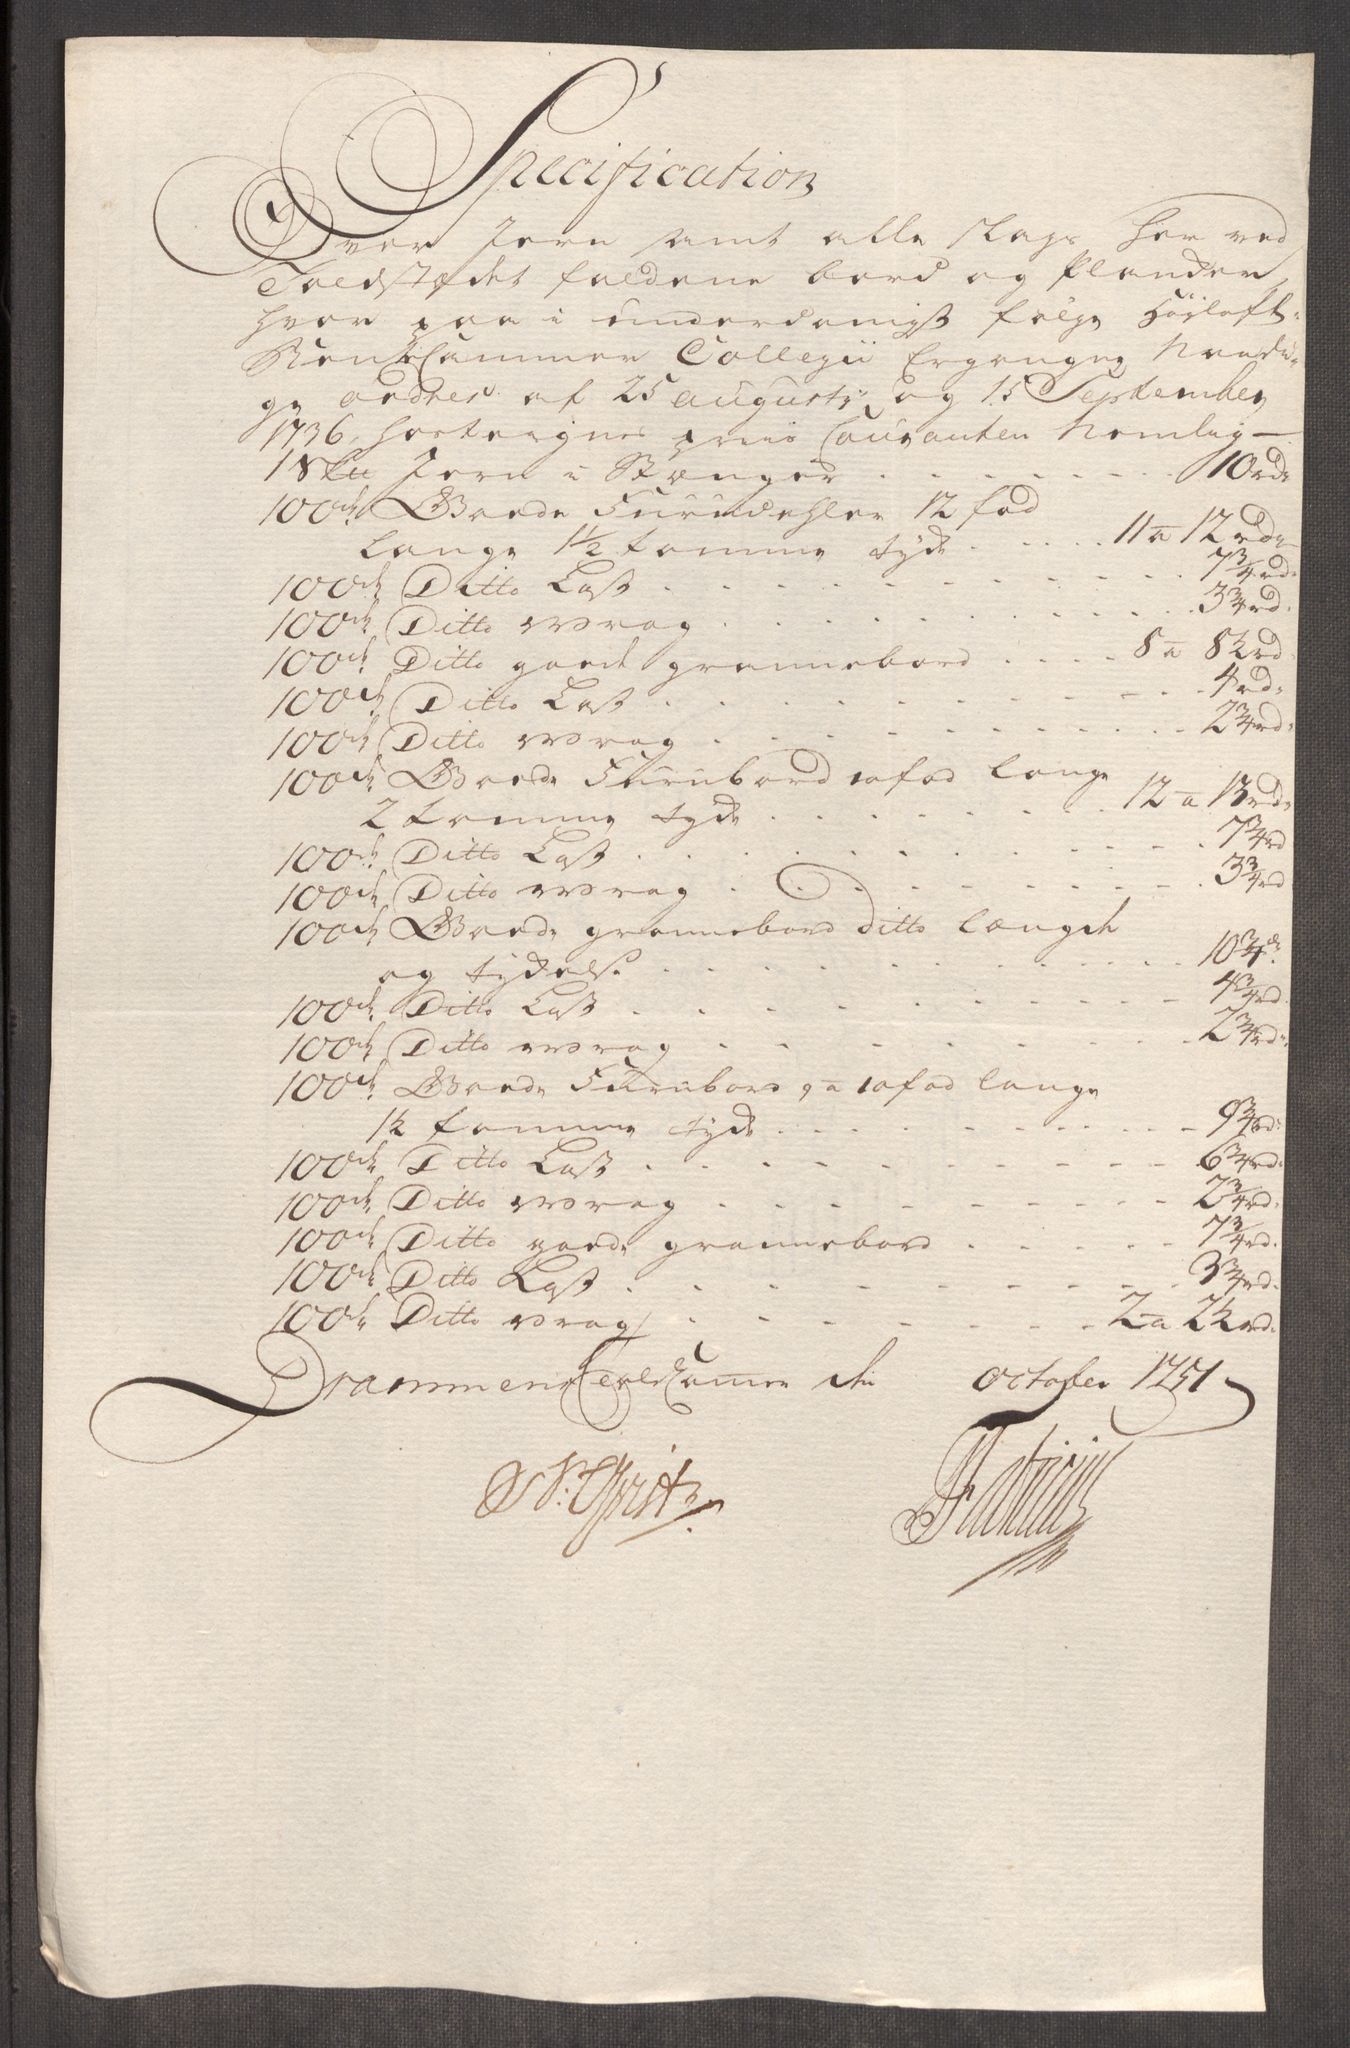 Specification
Over Jern samt alle slags her ved
Toldstædet faldene bord og Plancker
hvor paa i underdanigst følge Høyloft-
RenteCammer Collegii Ergangne Naadi-
ge ordres af 25 augusti og 15 September
1736, hostegnes priis Couranten Nemlig
1 Sk℔ Jern i Stænger . . . . . . 10 rdr
100de Goede Furudehler 12 fod
lange 1½ tomme tyck . . . . 11 a 12 rdr
100de Ditto Last . . . . . . 7¾ rd
100de Ditto wrag . . . . . . 3¾ rd
100de Ditto goede grannebord . . . . 8 a 8½ rd
100de Ditto Last . . . . . . 4 rd
100de Ditto wrag . . . . . . 2¾ rd
100de Goede Furubord 10 fod lange
2 tomme tyck . . . . . . 12 a 13 rdr
100de Ditto Last . . . . . . 7¾ rd
100de Ditto wrag . . . . . . 3¾ rd
100de Goede grannebord ditto længde
og tyckelse . . . . . . 10¾ d
100de Ditto Last . . . . . . 4¾ rd
100de Ditto wrag . . . . . . 2¾ rd
100de Goede Furubord 9 a 10 fod lange
1½ tomme tyck . . . . . . 9¾ rd
100de Ditto Last . . . . . . 6¾ rd
100de Ditto wrag . . . . . . 2¾ rd
100de Ditto goede grannebord . . . . . 7¾ rd
100de Ditto Last . . . . . . 3¾ rd
100de Ditto wrag . . . . . . 2 a 2½ rd
Drammens ToldCamer den october 1751